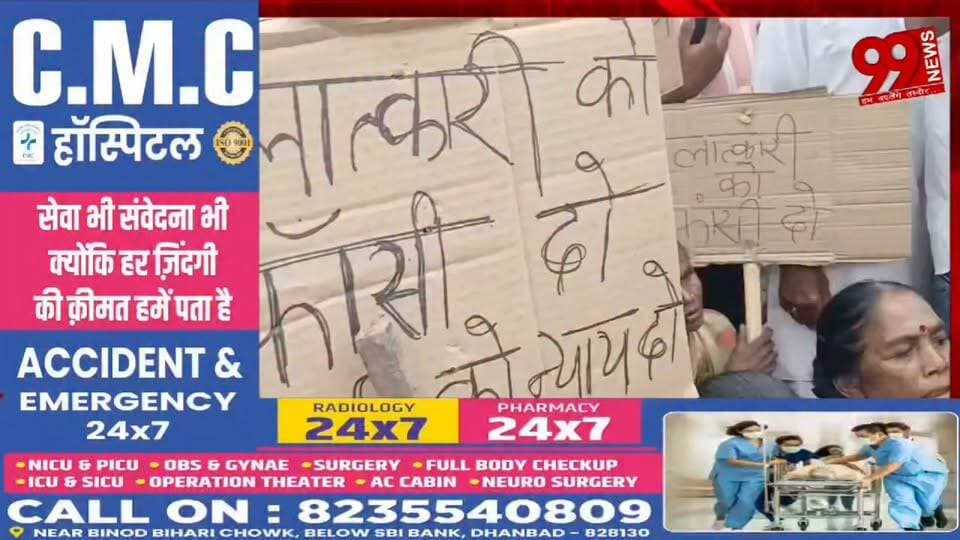 C.M.C
हॉस्पिटल
ISO 9001
सेवा भी संवेदना भी
क्योंकि हर ज़िंदगी
की क़ीमत हमें पता है
ACCIDENT &
EMERGENCY
24x7
लात्कारी को
फाँसी दो
को न्याय दो
लात्कारी
को
फांसी दो
99
NEWS
हम बदलेंगे तस्वीर...
RADIOLOGY
24x7
PHARMACY
24x7
• NICU & PICU • OBS & GYNAE • SURGERY • FULL BODY CHECKUP
• ICU & SICU • OPERATION THEATER • AC CABIN • NEURO SURGERY
CALL ON : 8235540809
NEAR BINOD BIHARI CHOWK, BELOW SBI BANK, DHANBAD - 828130